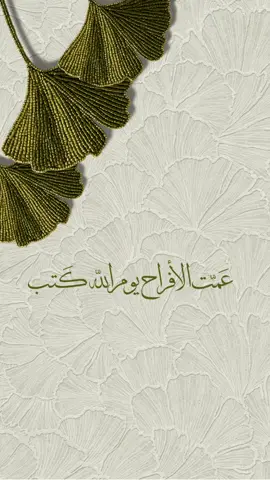 عَمَّت الأفراح يوم الله كَتب